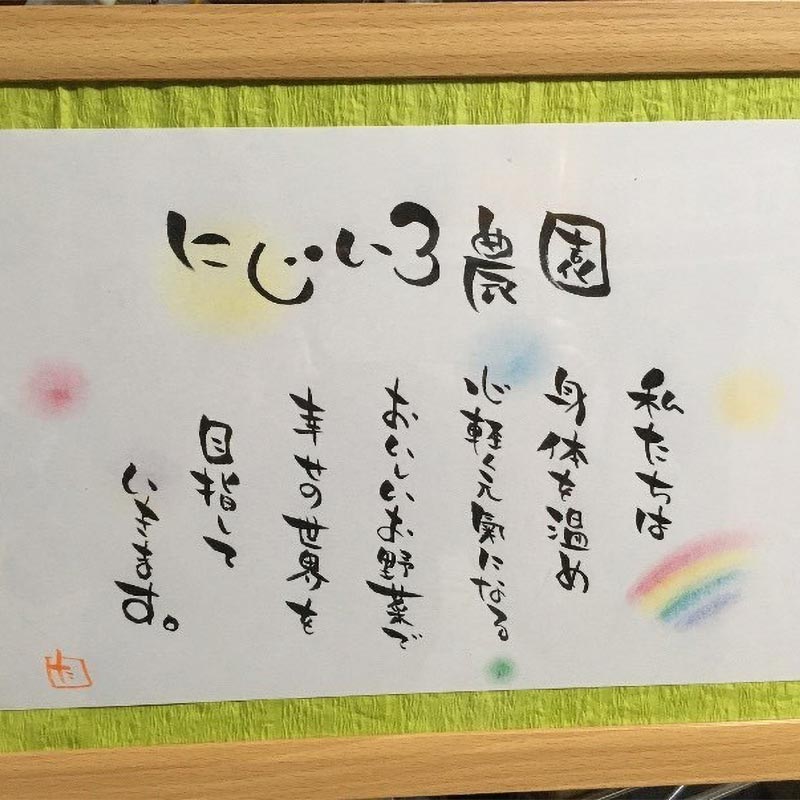 にじいろ農園
私たちは
身体を温め
心軽く元氣になる。
おいしいお野菜で
幸せの世界を
目指して
いきます。